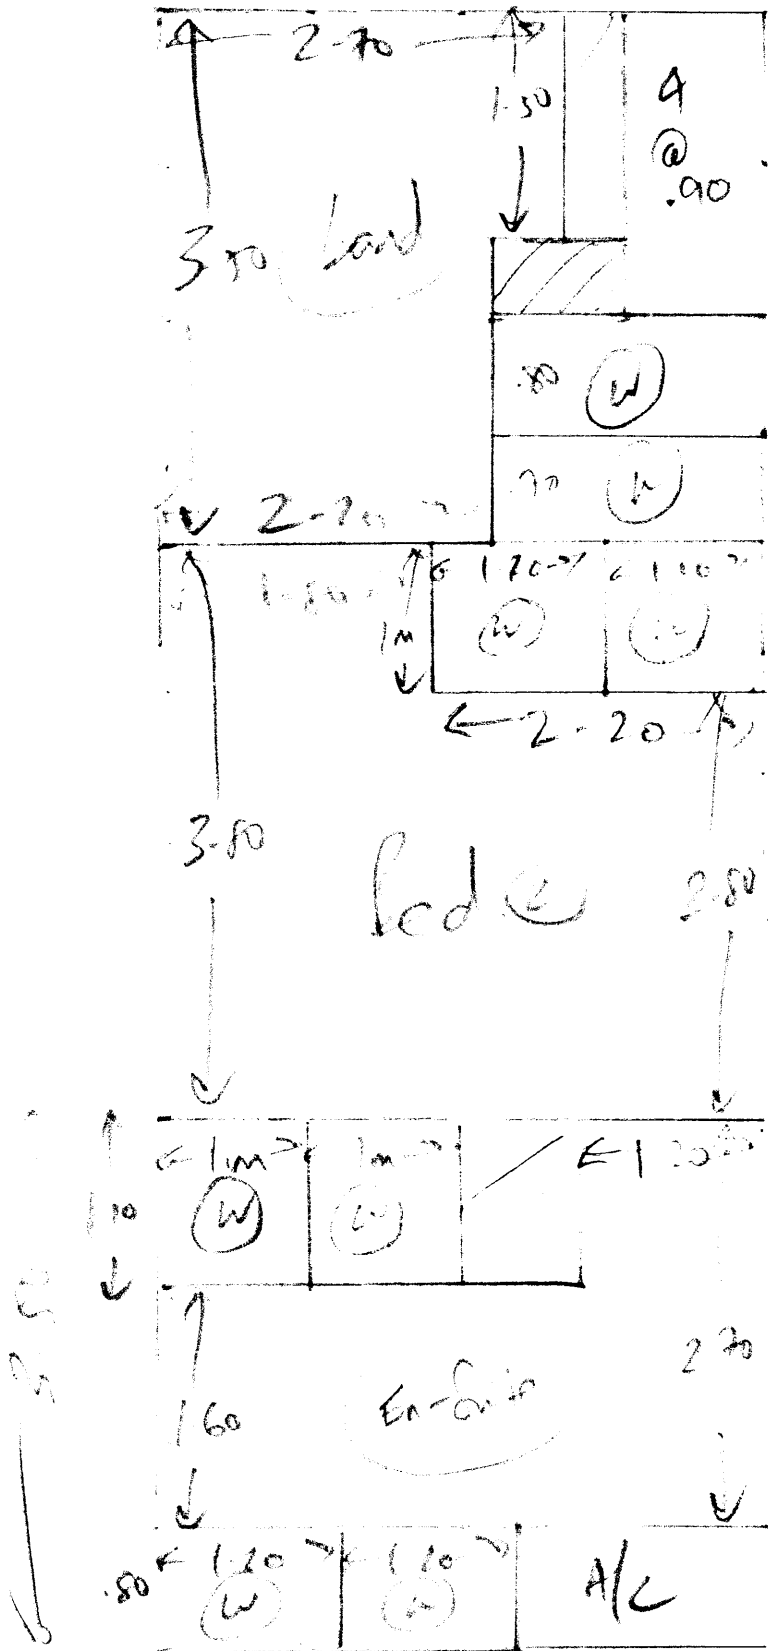 2-70
1-50
4
@
.90
3 50
Land
.80 W
.70 W
2-20
1-80
1-20
1-10
1m
W
W
2-20
3-80
Bed 2
2-80
1m
1m
1 20
1 10
W
W
2 70
1 60
En-Suite
.80
1-20
1-20
A/C
W
W